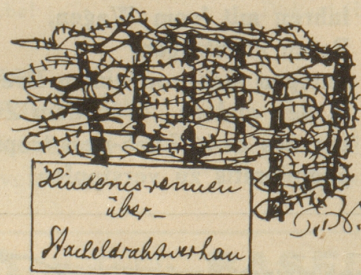 Hindernisrennen
über-
Stacheldrahtverhau